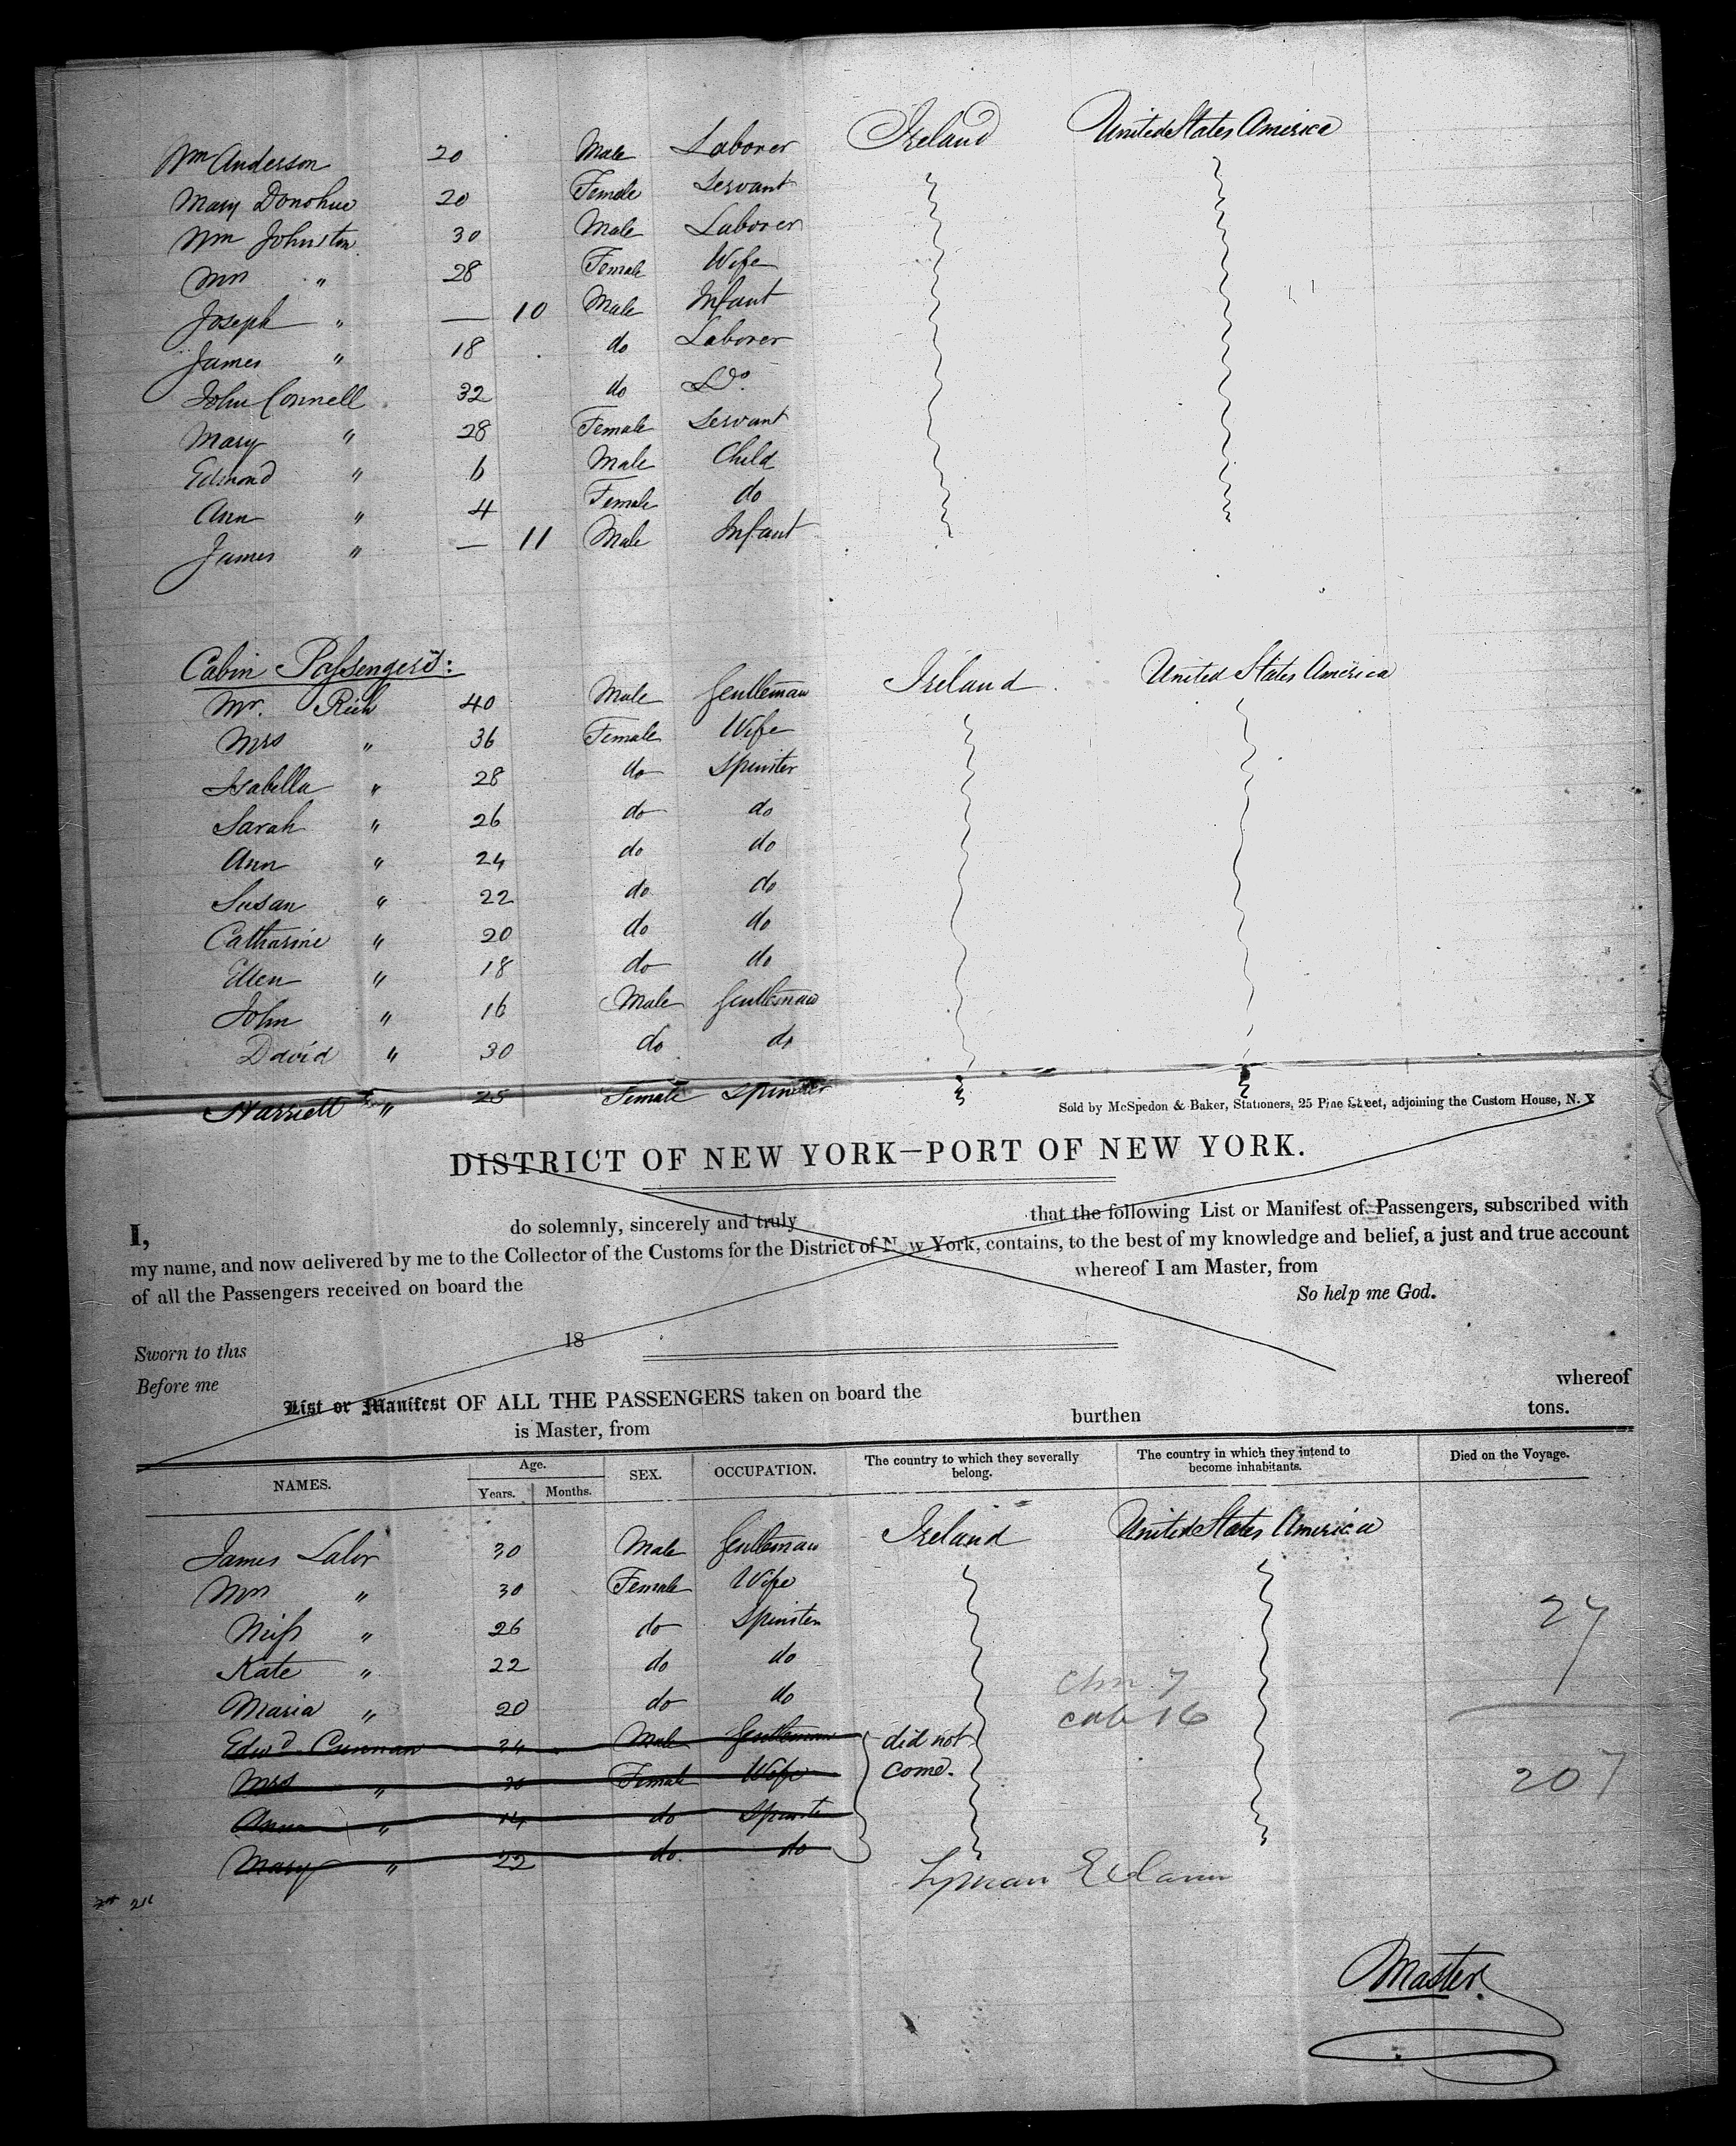 Wm Anderson 20 Male Laborer Ireland United States America
Mary Donohue 20 Female Servant
Wm Johnston 30 Male Laborer
Mrs " 28 Female Wife
Joseph " — 10 Male Infant
James " 18 do Laborer
John Connell 32 do Do.
Mary " 28 Female Servant
Edmond " 6 Male Child
Ann " 4 Female do
James " — 11 Male Infant
Cabin Passengers:
Mr. Rich 40 Male Gentleman Ireland United States America
Mrs " 36 Female Wife
Isabella " 28 do Spinster
Sarah " 26 do do
Ann " 24 do do
Susan " 22 do do
Catharine " 20 do do
Ellen " 18 do do
John " 16 Male Gentleman
David " 30 do do
Harriett " 25 Female Spinster
Sold by McSpedon & Baker, Stationers, 25 Pine Street, adjoining the Custom House, N. Y
DISTRICT OF NEW YORK—PORT OF NEW YORK.
I, do solemnly, sincerely and truly that the following List or Manifest of Passengers, subscribed with
my name, and now delivered by me to the Collector of the Customs for the District of New York, contains, to the best of my knowledge and belief, a just and true account
of all the Passengers received on board the whereof I am Master, from
So help me God.
Sworn to this 18
Before me
List or Manifest OF ALL THE PASSENGERS taken on board the whereof
is Master, from burthen tons.
NAMES. Age. Years. Months. SEX. OCCUPATION. The country to which they severally belong. The country in which they intend to become inhabitants. Died on the Voyage.
James Lalor 30 Male Gentleman Ireland United States America
Mrs " 30 Female Wife
Miss " 26 do Spinster
Kate " 22 do do
Maria " 20 do do
Edwd 24 Male Gentleman did not
Mrs " Female Wife come.
" 14 do Spinster
Mary " 22 do do
27
7
cab 16
207
Lyman
Master.